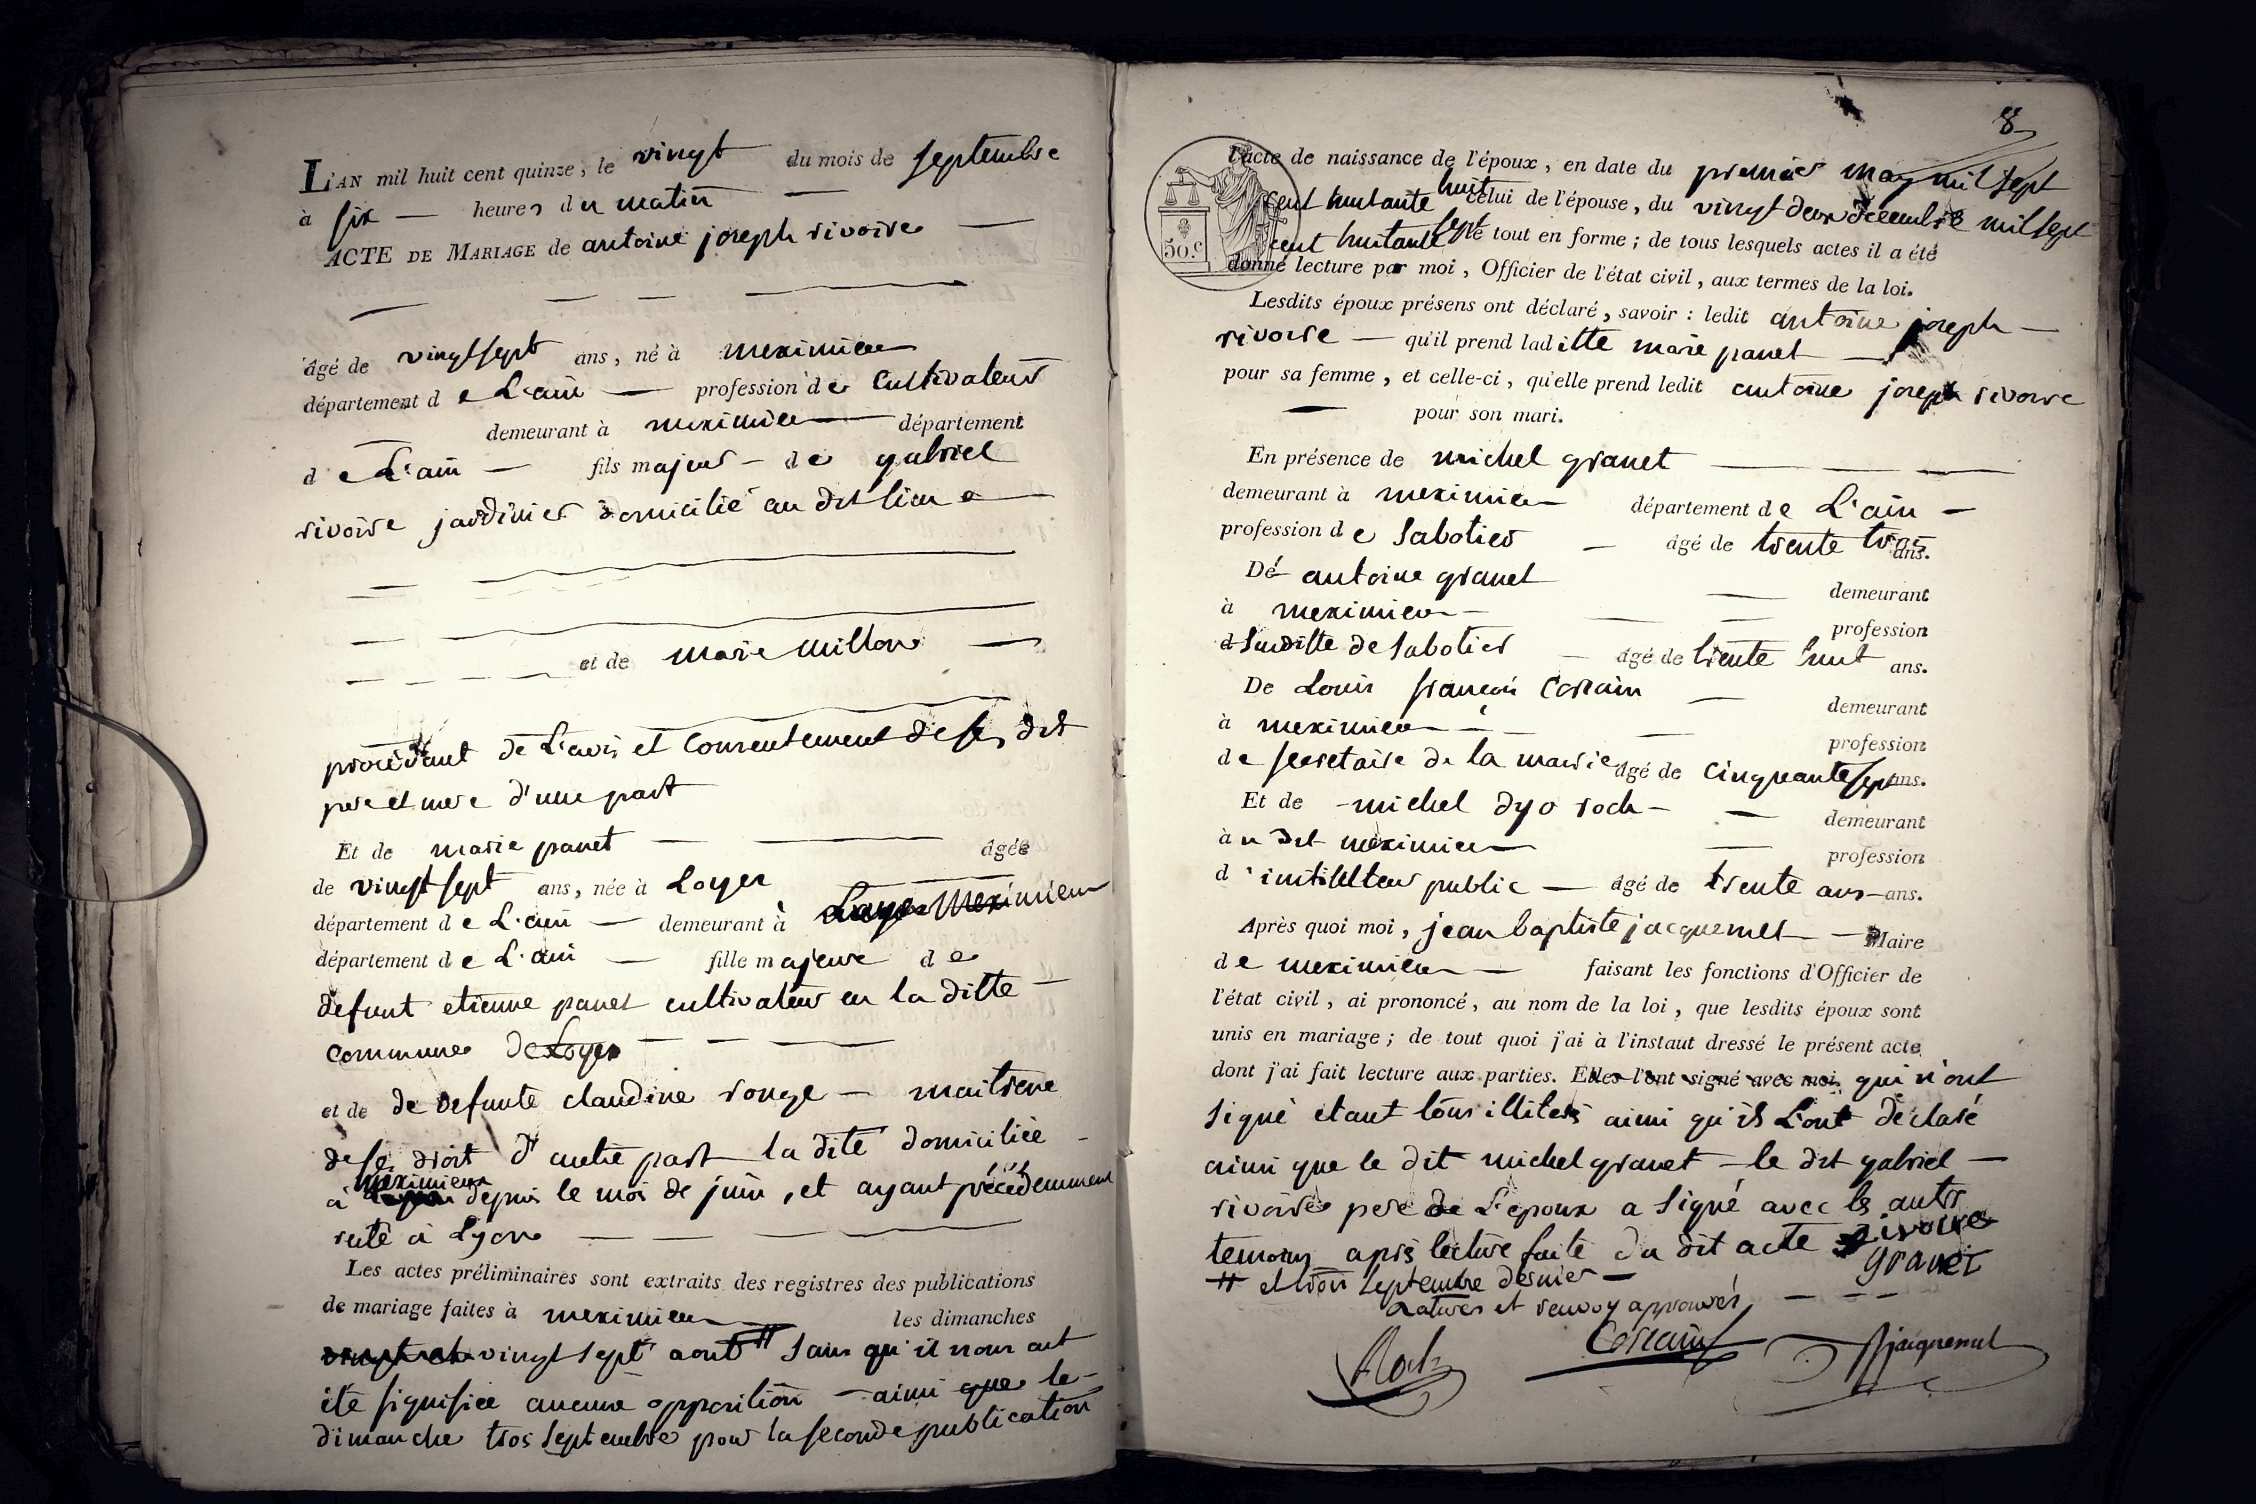 L'AN mil huit cent quinze, le vingt du mois de septembre
à six — heures du matin —
ACTE DE MARIAGE de antoine joseph rivoire —
âgé de vingt sept ans, né à meximieu
département de L'ain — profession de Cultivateur
demeurant à meximieu — département
de L'ain — fils majeur — de gabriel
rivoire jardinier domicilié au dit lieu
et de marie millon —
procédant de L'avis et Consentement de ses dit
pere et mere d'une part
Et de marie panet — âgée
de vingt sept ans, née à Loyes
département de L'ain — demeurant à Loyes Meximieu
département de L'ain — fille majeure de
defunt etienne panet cultivateur en la ditte —
commune de Loyes —
et de de defunte claudine rouge — maitresse
de ses droit d'autre part la dite domiciliée
à meximieux depuis le mois de juin, et ayant précédemment
resté à Lyon —
Les actes préliminaires sont extraits des registres des publications
de mariage faites à meximieu les dimanches
vingt et vingt sept aout # sans qu'il nous ait
été signifiée aucune opposition — ainsi que le
dimanche trois septembre pour la seconde publication
8
50 c
l'acte de naissance de l'époux, en date du premier may mil sept
cent huitante huit celui de l'épouse, du vingt deux decembre mil sept
cent huitante sept le tout en forme; de tous lesquels actes il a été
donné lecture par moi, Officier de l'état civil, aux termes de la loi.
Lesdits époux présens ont déclaré, savoir: ledit antoine joseph —
rivoire — qu'il prend laditte marie panet —
pour sa femme, et celle-ci, qu'elle prend ledit antoine joseph rivoire
— pour son mari.
En présence de michel granet —
demeurant à meximieu département de L'ain —
profession de sabotier — âgé de trente trois ans.
De antoine granet — demeurant
à meximieu — profession
d susditte de sabotier — âgé de trente huit ans.
De Louis françois Corsain — demeurant
à meximieu — profession
de secretaire de la mairie âgé de cinquante sept ans.
Et de - michel dyo roch — demeurant
à u dit meximieu — profession
d'instituteur public — âgé de trente ans — ans.
Après quoi moi, jean baptiste jacquemet — Maire
de meximieu — faisant les fonctions d'Officier de
l'état civil, ai prononcé, au nom de la loi, que lesdits époux sont
unis en mariage; de tout quoi j'ai à l'instant dressé le présent acte
dont j'ai fait lecture aux parties. Elles l'ont signé avec moi. qui n'ont
signé etant tous illiterés ainsi qu'ils L'ont déclaré
ainsi que le dit michel granet — le dit gabriel —
rivoire pere de L'epoux a signé avec les autres
temoins après lecture faite du dit acte rivoire
granet
# et trois septembre dernier —
ratures et renvoy approuvés
Roch Corsain Jacquemet